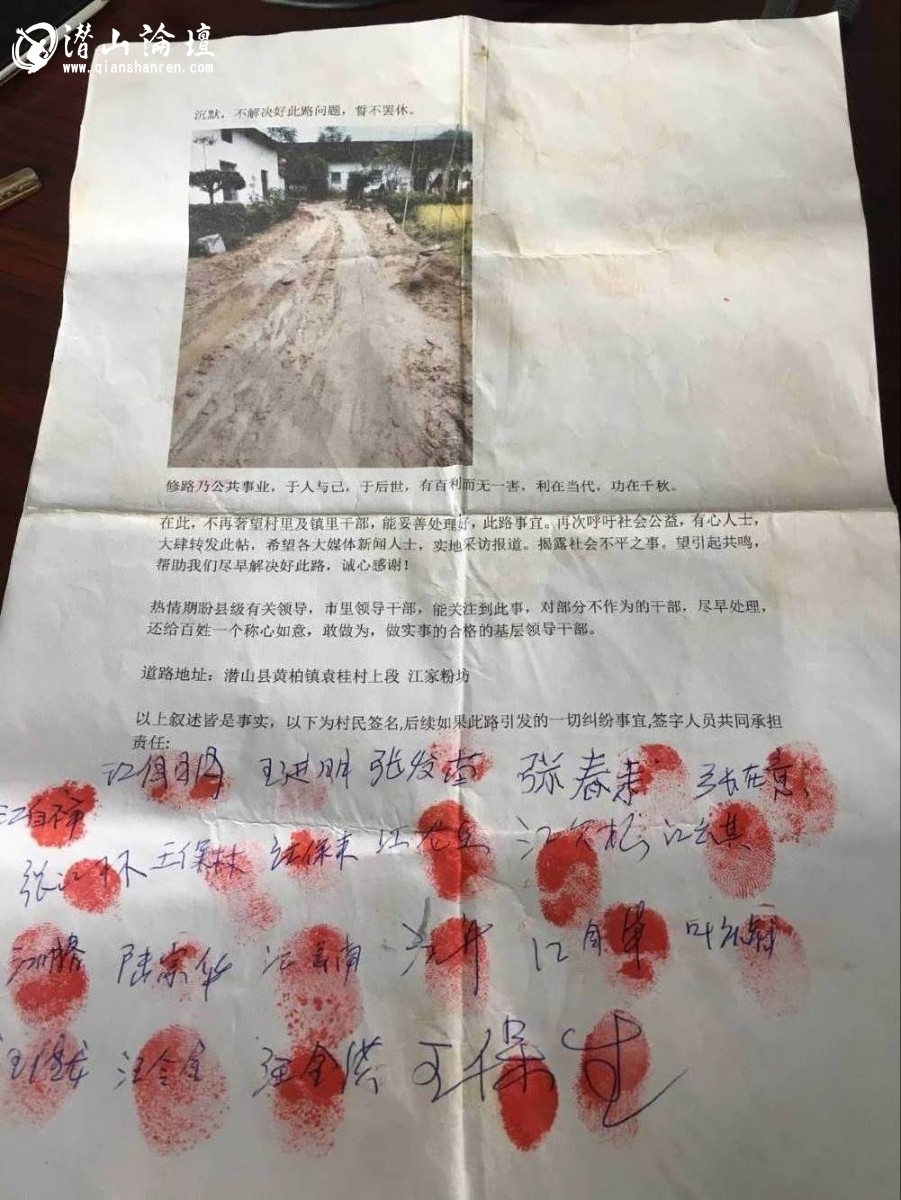 潜山論壇
www.qianshanren.com
沉默，不解决好此路问题，誓不罢休。
修路乃公共事业，于人与己，于后世，有百利而无一害，利在当代，功在千秋。
在此，不再奢望村里及镇里干部，能妥善处理好，此路事宜。再次呼吁社会公益，有心人士，
大肆转发此帖，希望各大媒体新闻人士，实地采访报道。揭露社会不平之事。望引起共鸣，
帮助我们尽早解决好此路，诚心感谢！
热情期盼县级有关领导，市里领导干部，能关注到此事，对部分不作为的干部，尽早处理，
还给百姓一个称心如意，敢做为，做实事的合格的基层领导干部。
道路地址：潜山县黄柏镇袁桂村上段 江家粉坊
以上叙述皆是事实，以下为村民签名,后续如果此路引发的一切纠纷事宜,签字人员共同承担
责任:
王进 张发 张春来
王保林
陆宗华
汪金全 王保生